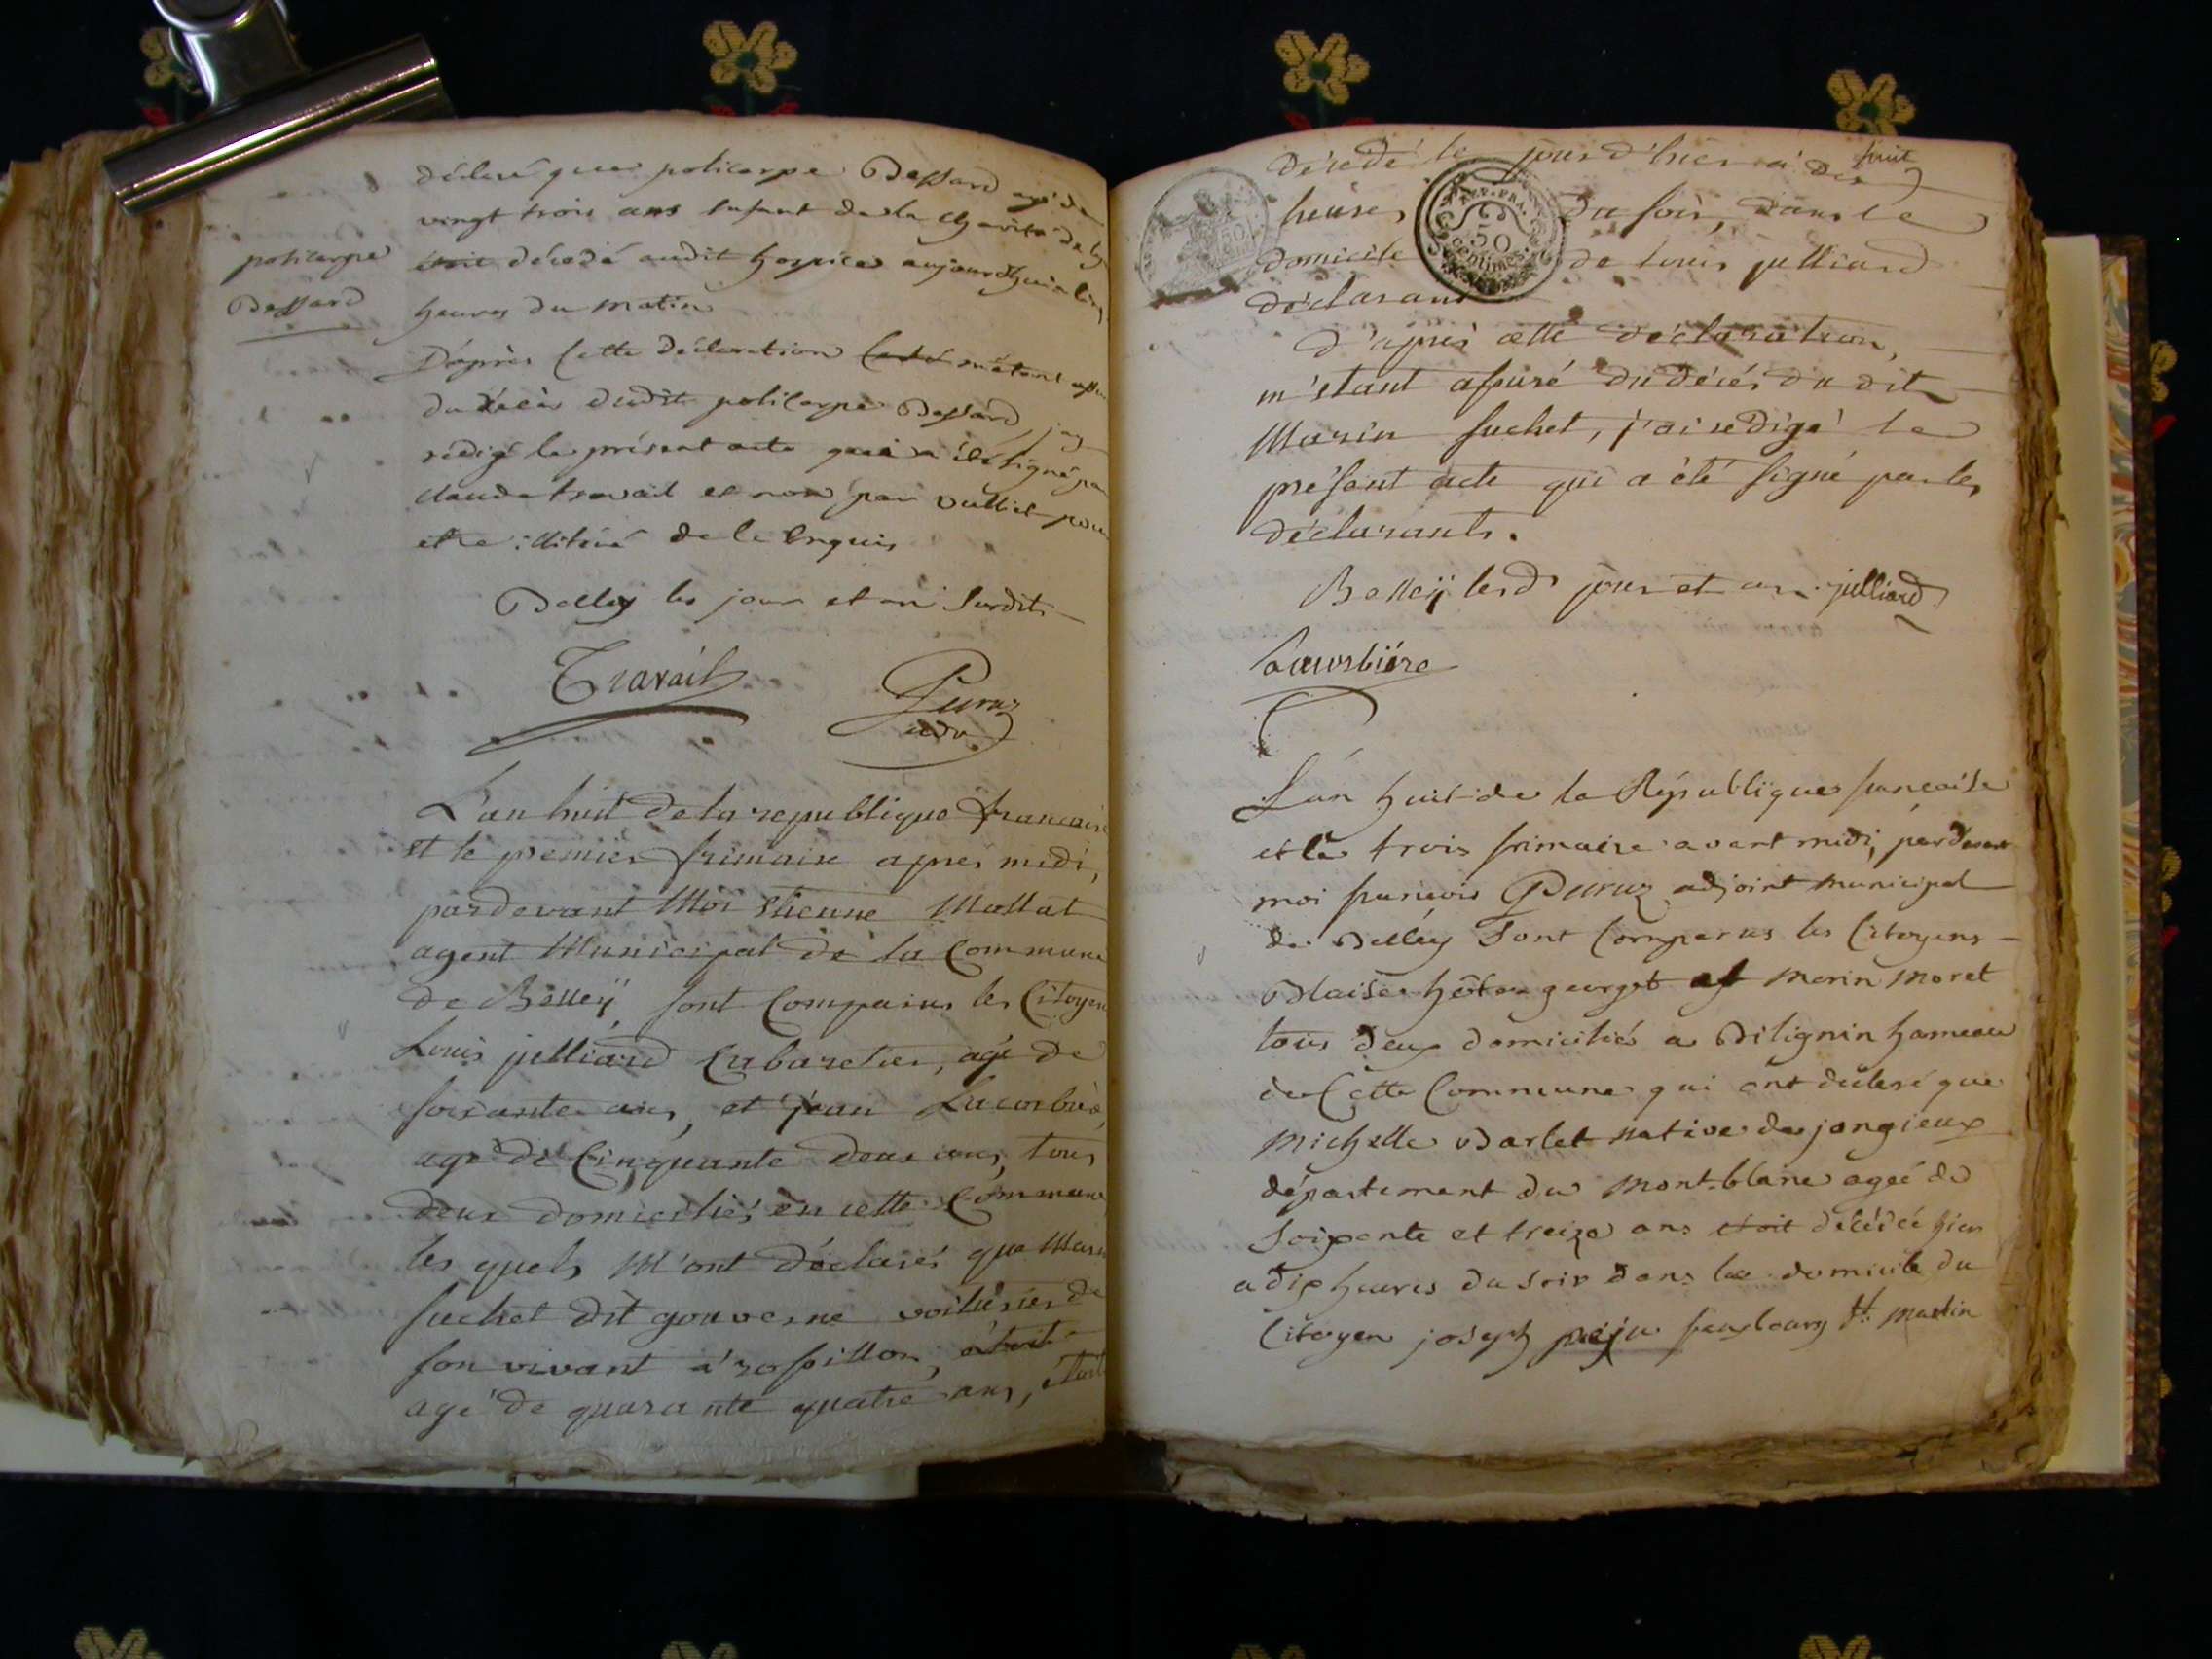 policarpe
Dessard
déclaré que policarpe Dessard agé de
vingt trois ans enfant de la charité de
étoit décédé audit hospice aujourdhui a
heures du matin
D'après cette déclaration m'étant
du décès dudit policarpe Dessard, j'ay
rédigé le présent acte qui a été signé par
claude travail et non par vulliet pour
etre illitéré de le enquis
Belley les jour et an susdits
Travail
Peruz
adj
L'an huit de la republique francaise
et le premier frimaire apres midi,
pardevant Moi Etienne Mollat
agent Municipal de la Commune
de Belleÿ sont Comparus les Citoyens
Louis julliard Cabaretier, agé de
soixante ans, et jean Lacorbiè
agé de Cinquante deux ans, tous
deux domiciliés en cette Commune
les quels M'ont déclarés que Marin
suchet dit gouverne voiturier de
son vivant à rossillon, étoit
agé de quarante quatre ans, étoit
décédé le jour d'hier à dix huit
heures du soir, dans le
domicile de louis julliard
déclarant
TIMP. FRA.
50
centimes
d'après cette déclaration,
m'étant assuré du décés du dit
Marin suchet, j'ai redigé le
présent acte qui a été signé par les
déclarants.
Belleÿ lesd jour et an. julliard
Lacorbiére
L'an huit de la Républiqué francaise
et le trois frimaire avant midi, pardevant
moi francois Peruz adjoint municipal
de Belley Sont Comparus les Citoyens
Blaise georget et Marin Moret
tous deux domiciliés a Bilignin hameau
de Cette Commune qui ont déclaré que
Michelle Barlet native de jongieux
département du Mont-blanc agée de
Soixante et treize ans étoit décédée hier
a dix heures du soir dans le domicile du
Citoyen joseph fauxbourg St. Martin